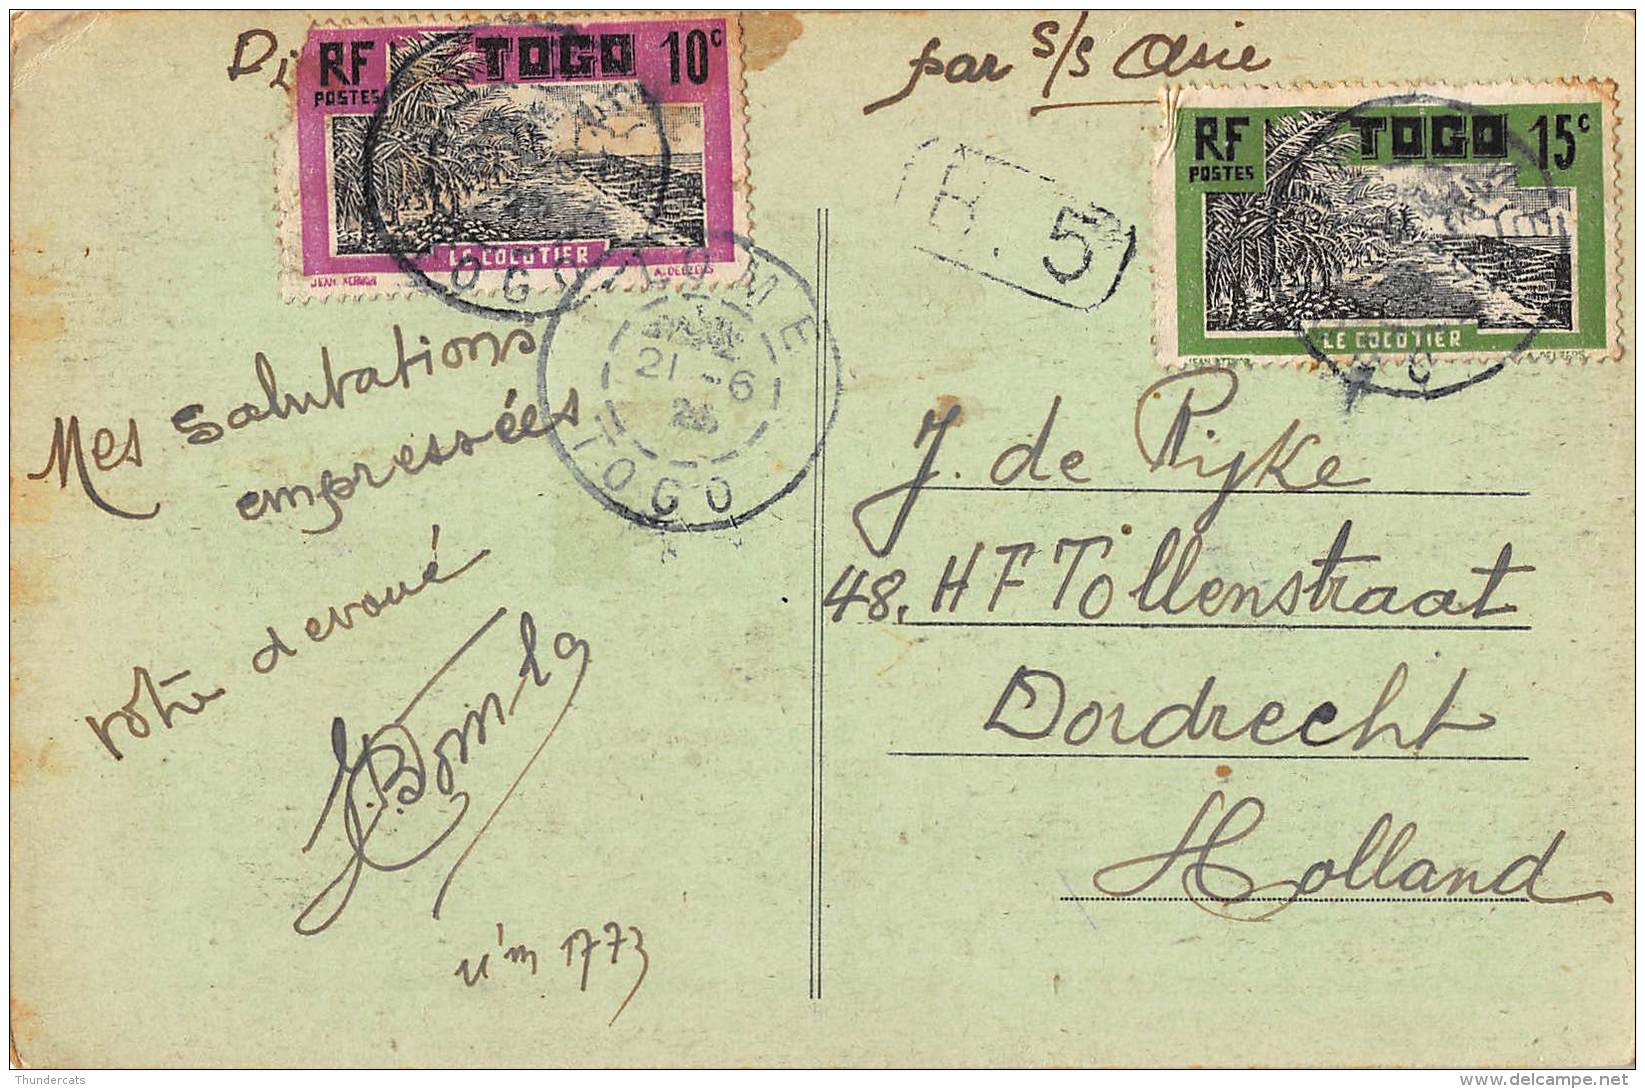 par s/s Asie
RF TOGO 10c
POSTES
LE COCOTIER
A. DELZERS
RF TOGO 15c
POSTES
LE COCOTIER
B. 5
LOME
21 -6
TOGO
Mes Salutations
empressées
votre devoué
1773
J. de Rijke
48, HF Tollenstraat
Dordrecht
Holland
Thundercats
delcampe.net